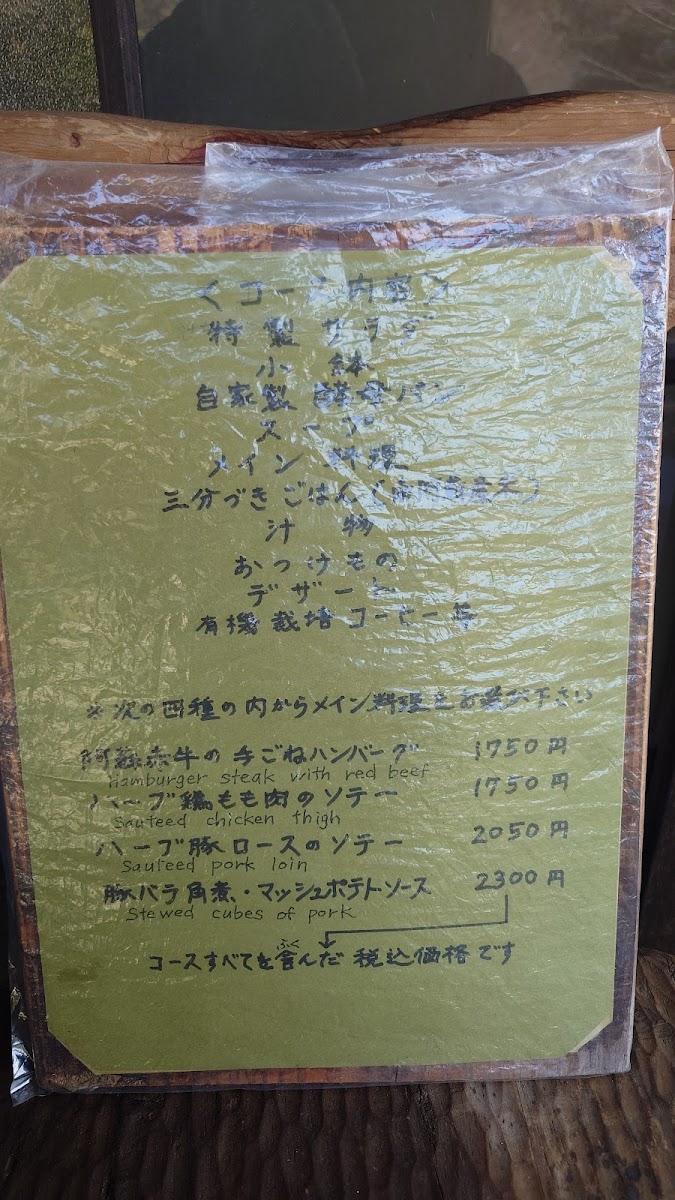 〈コース内容〉
特製サラダ
小鉢
自家製 酵母パン
スープ
メイン料理
三分づきごはん
汁物
おつけもの
デザート
有機栽培コーヒー等
※次の四種の内からメイン料理をお選び下さい
阿蘇赤牛の手ごねハンバーグ 1750円
Hamburger steak with red beef
ハーブ鶏もも肉のソテー 1750円
Sauteed chicken thigh
ハーブ豚ロースのソテー 2050円
Sauteed pork loin
豚バラ角煮・マッシュポテトソース 2300円
Stewed cubes of pork
ふく
コースすべてを含んだ 税込価格です